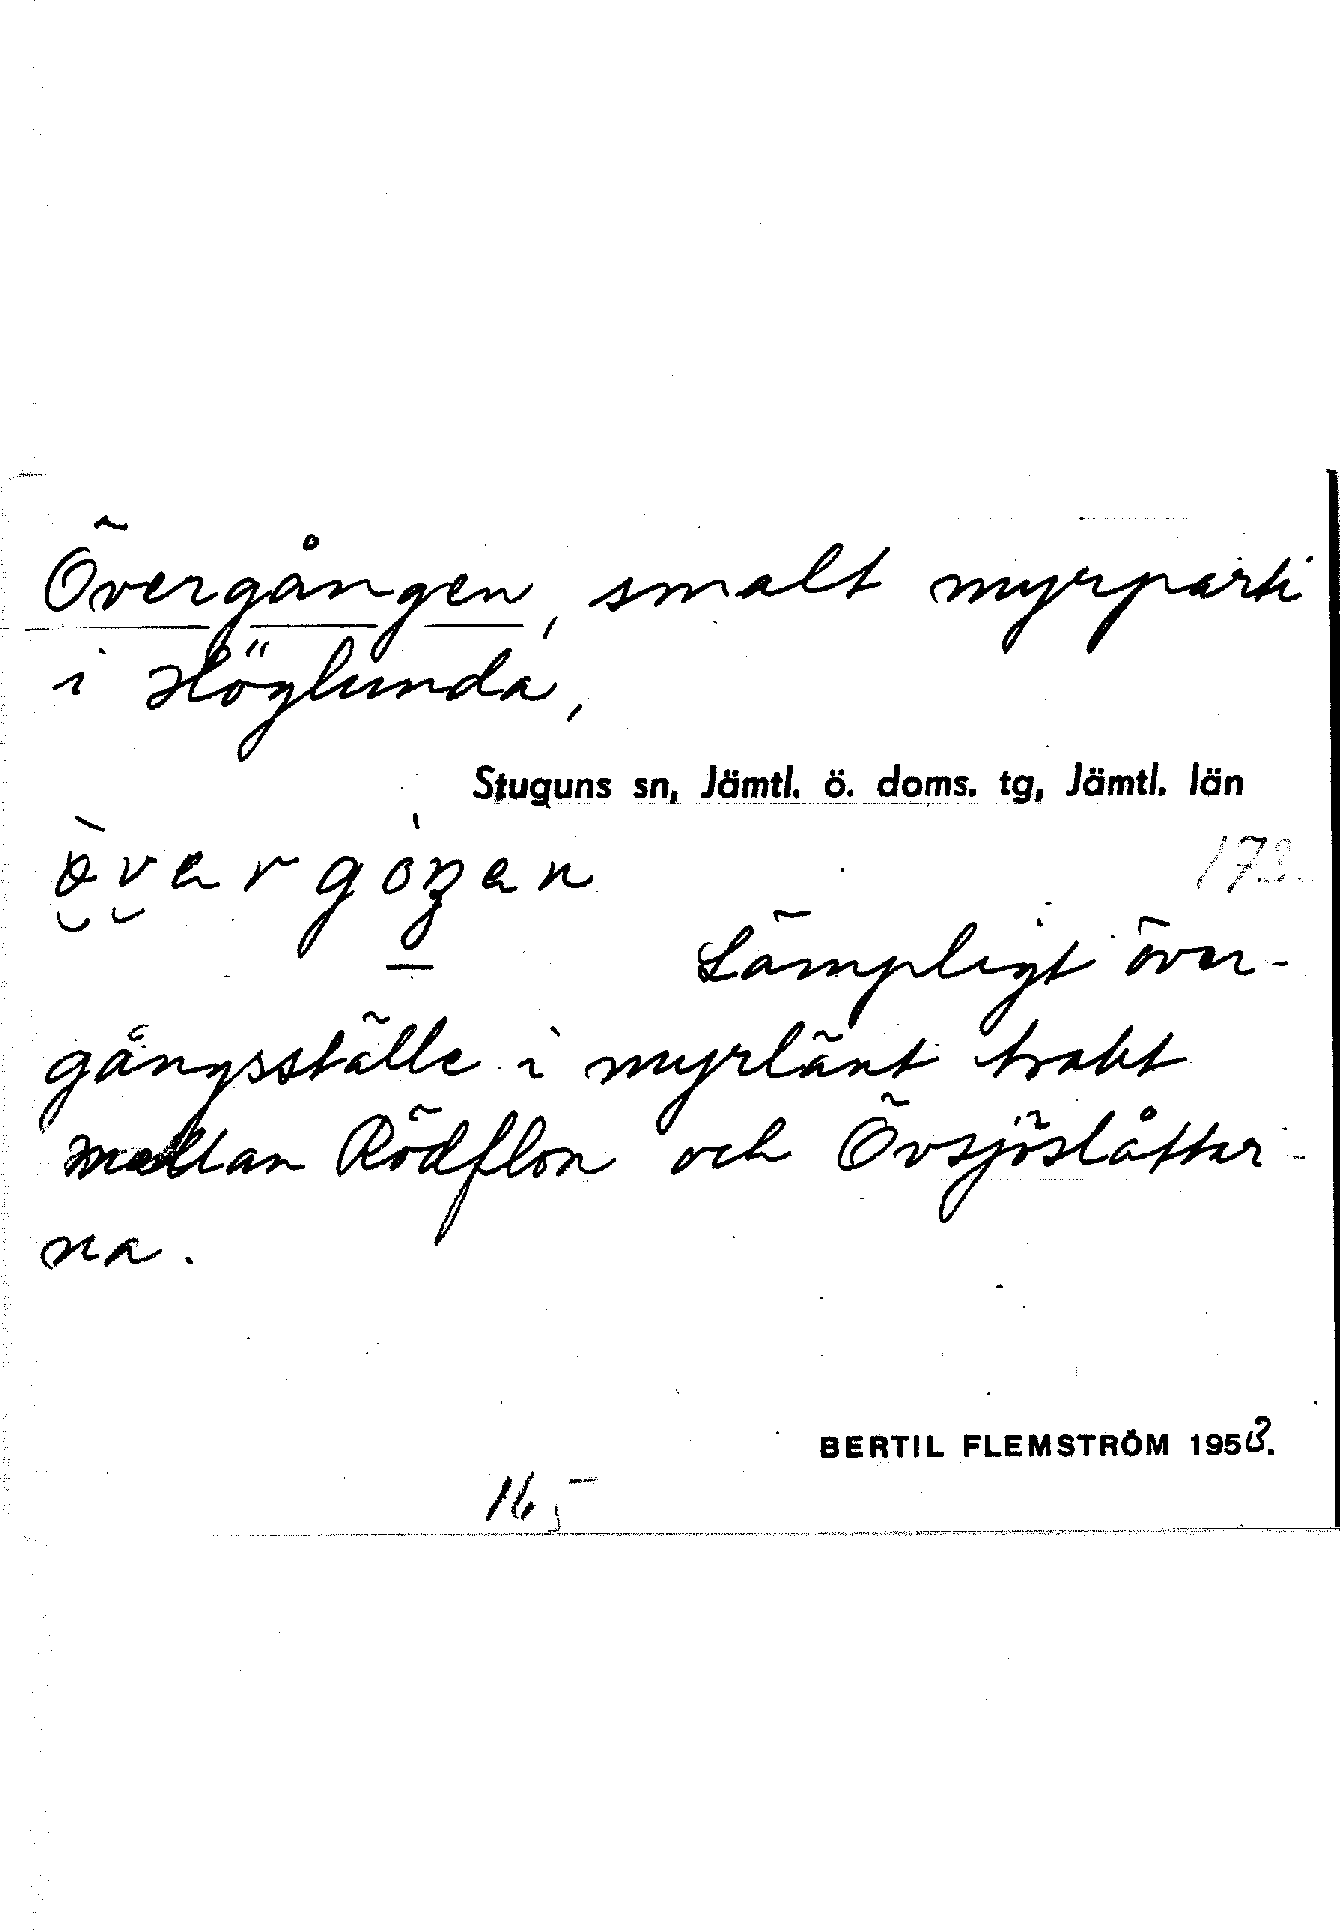 Övergången, smalt myrparti
i Höglunda,
Stuguns sn, Jämtl. ö. doms. tg, Jämtl. län
173.
Lämpligt över-
gångsställe i myrlänt trakt
mellan Rödflon och Övsjöslåtter-
na.
BERTIL FLEMSTRÖM 1953.
165